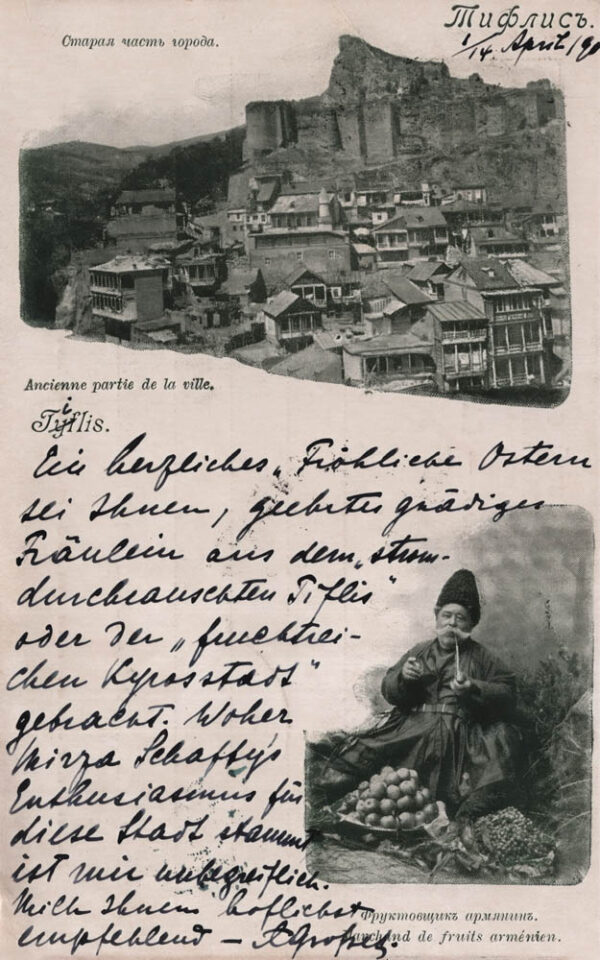 Тифлисъ.
Старая часть города.
1/14. April /90
Ancienne partie de la ville.
Tiflis.
Ein herzliches „Fröhliche Ostern
sei Ihnen, geehrtes gnädiges
Fräulein aus dem „strom-
durchrauschten Tiflis“
oder der „fruchtrei-
chen Kyrosstadt“
gebracht. Woher
Mirza Schaffy's
Enthusiasmus für
diese Stadt stammt
ist mir unbegreiflich.
Mich Ihnen höflichst
empfehlend –
Фруктовщикъ армянинъ.
Marchand de fruits arménien.